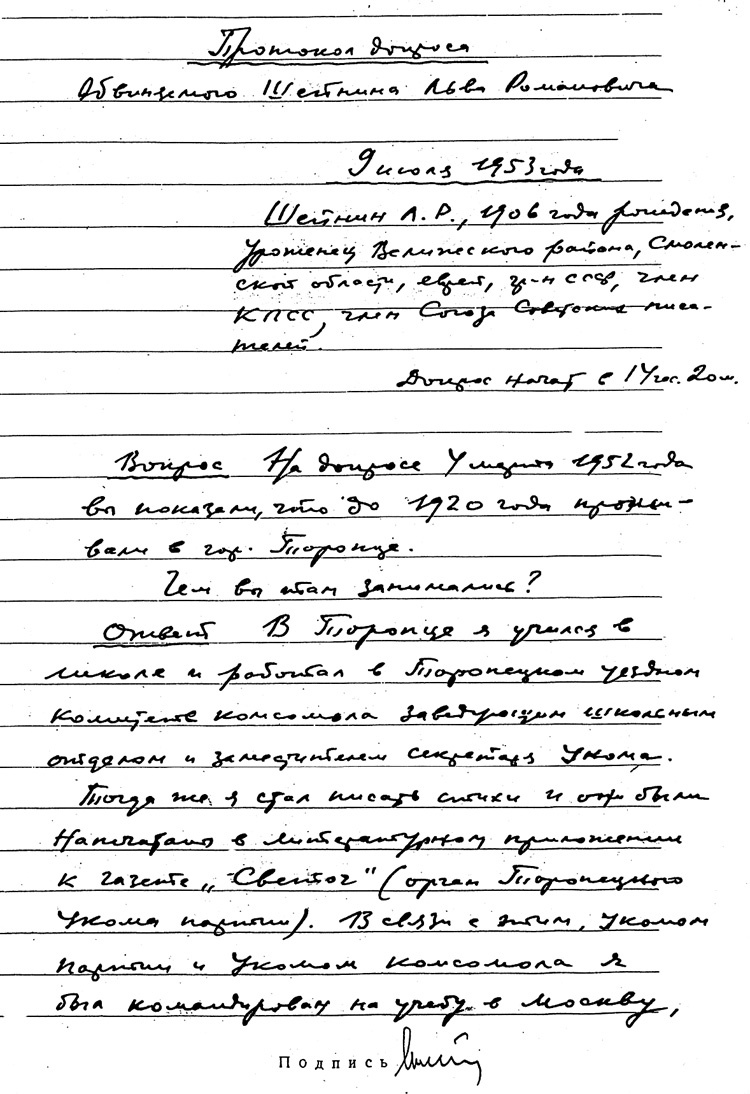 Протокол допроса
Обвиняемого Шейнина Льва Романовича
9 июля 1953 года
Шейнин Л. Р., 1906 года рождения,
уроженец Велижского района, Смолен-
ской области, еврей, гр-н СССР, член
КПСС, член Союза Советских писа-
телей.
Допрос начат в 14 час. 20 м.
Вопрос На допросе 4 марта 1952 года
вы показали, что до 1920 года прожи-
вали в гор. Торопце.
Чем вы там занимались?
Ответ В Торопце я учился в
школе и работал в Торопецком уездном
комитете комсомола заведующим школьным
отделом и заместителем секретаря Укома.
Тогда же я стал писать стихи и они были
напечатаны в литературном приложении
к газете „Светоч" (орган Торопецкого
Укома партии). В связи с этим, Укомом
партии и Укомом комсомола я
был командирован на учебу в Москву,
Подпись